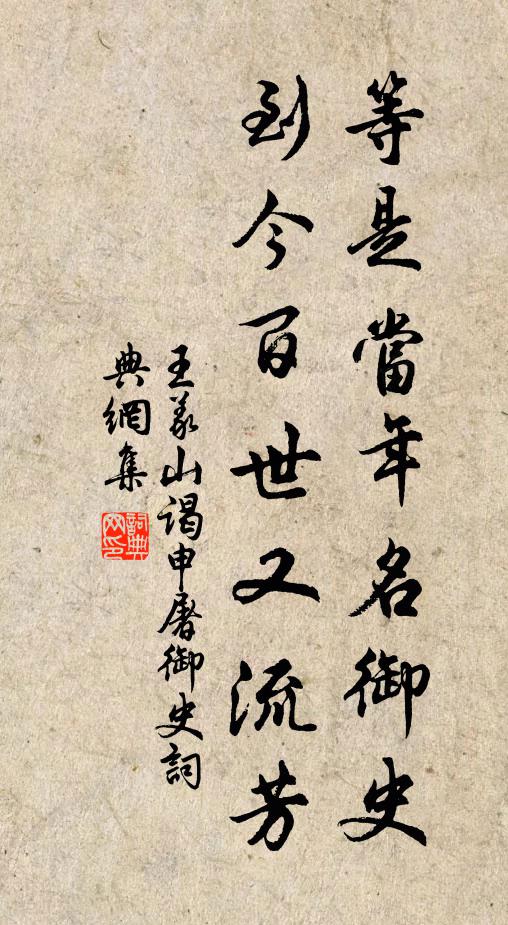 等是當年名御史
到今百世又流芳
王義山謁申屠御史詞
典網集
詞典網印